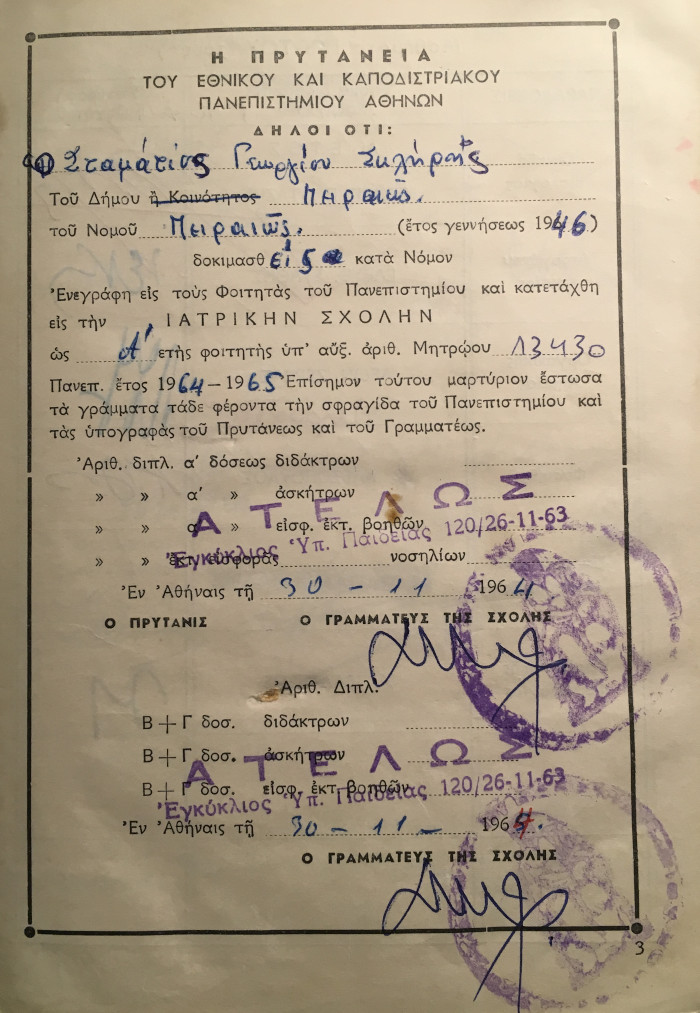 Η ΠΡΥΤΑΝΕΙΑ
ΤΟΥ ΕΘΝΙΚΟΥ ΚΑΙ ΚΑΠΟΔΙΣΤΡΙΑΚΟΥ
ΠΑΝΕΠΙΣΤΗΜΙΟΥ ΑΘΗΝΩΝ
ΔΗΛΟΙ ΟΤΙ:
Σταμάτιος Γεωργίου Σκλήρης
Τοῦ Δήμου ἢ Κοινότητος Πειραιῶς.
τοῦ Νομοῦ Πειραιῶς. (ἔτος γεννήσεως 1946)
δοκιμασθείς κατὰ Νόμον
Ἐνεγράφη εἰς τοὺς Φοιτητὰς τοῦ Πανεπιστημίου καὶ κατετάχθη
εἰς τὴν ΙΑΤΡΙΚΗΝ ΣΧΟΛΗΝ
ὡς Α' ετὴς φοιτητὴς ὑπ' αὔξ. ἀριθ. Μητρῴου 13430
Πανεπ. ἔτος 1964-1965 Ἐπίσημον τούτου μαρτύριον ἔστωσα
τὰ γράμματα τάδε φέροντα τὴν σφραγίδα τοῦ Πανεπιστημίου καὶ
τὰς ὑπογραφὰς τοῦ Πρυτάνεως καὶ τοῦ Γραμματέως.
Ἀριθ. διπλ. α' δόσεως διδάκτρων
» » α' » ἀσκήτρων
ΑΤΕΛΩΣ
» » α' » εἰσφ. ἐκτ. βοηθῶν
Ἐγκύκλιος Ὑπ. Παιδείας 120/26-11-63
» » ἐκτ. εἰσφορᾶς νοσηλίων
Ἐν Ἀθήναις τῇ 30-11 1964
Ο ΠΡΥΤΑΝΙΣ Ο ΓΡΑΜΜΑΤΕΥΣ ΤΗΣ ΣΧΟΛΗΣ
Ἀριθ. Διπλ.
Β+Γ δοσ. διδάκτρων
Β+Γ δοσ. ἀσκήτρων
ΑΤΕΛΩΣ
Β+Γ δοσ. εἰσφ. ἐκτ. βοηθῶν
Ἐγκύκλιος Ὑπ. Παιδείας 120/26-11-63
Ἐν Ἀθήναις τῇ 30-11- 1964.
Ο ΓΡΑΜΜΑΤΕΥΣ ΤΗΣ ΣΧΟΛΗΣ
3